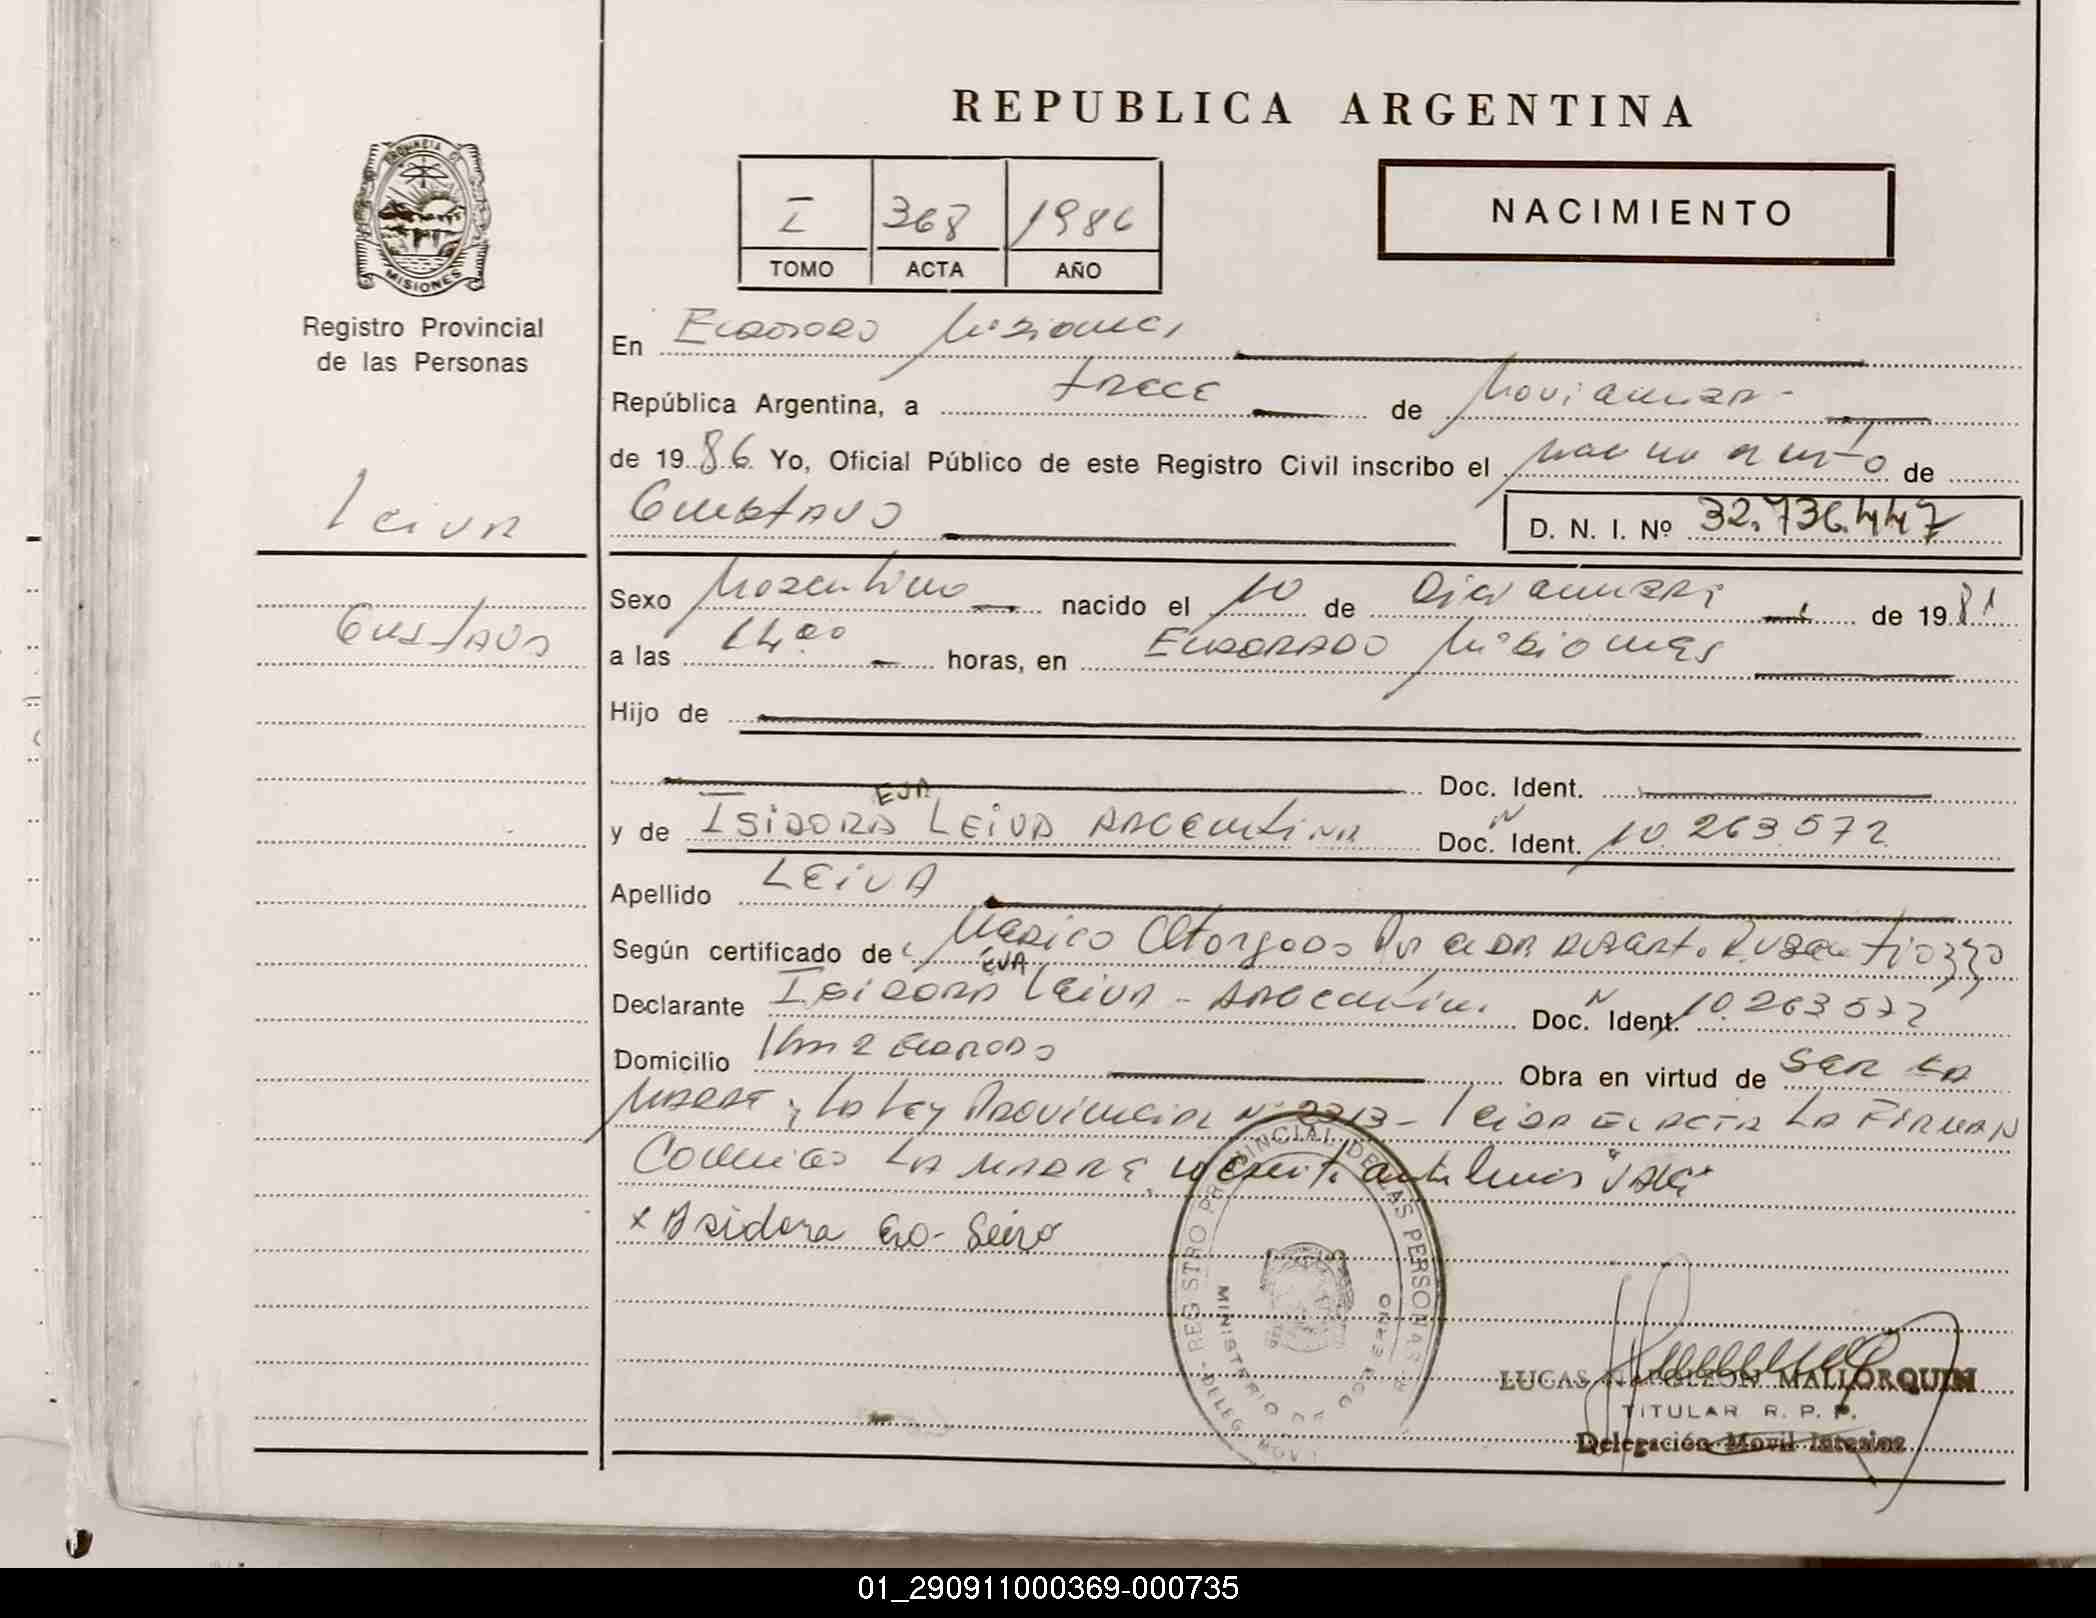 REPUBLICA ARGENTINA
PROVINCIA DE
MISIONES
Registro Provincial
de las Personas
I 368 1986
TOMO ACTA AÑO
NACIMIENTO
En Eldorado Misiones
República Argentina, a trece de Noviembre
de 1986 Yo, Oficial Público de este Registro Civil inscribo el nacimiento de
Leiva
Gustavo
D. N. I. Nº 32.736.447
Sexo Masculino nacido el 10 de Diciembre de 1981
Gustavo
a las 14:00 horas, en Eldorado Misiones
Hijo de
Doc. Ident.
EVA
y de ISIDORA LEIVA ARGENTINA Doc. Ident. N 10.263.572
Apellido LEIVA
Según certificado de Medico Otorgado Por
EVA
Declarante ISIDORA Leiva - Argentina Doc. Ident. N 10.263.572
Domicilio Km 2 Eldorado Obra en virtud de SER LA
MADRE y La Ley Provincial Nº 2313 - Leida EL ACTA LA FIRMAN
Conmigo LA MADRE "VALE"
x Isidora Eva Leiva
REGISTRO PROVINCIAL DE LAS PERSONAS
MINISTERIO DE GOBIERNO
LUCAS NAPOLEON MALLORQUIN
TITULAR R. P. P.
Delegación Movil
01_290911000369-000735